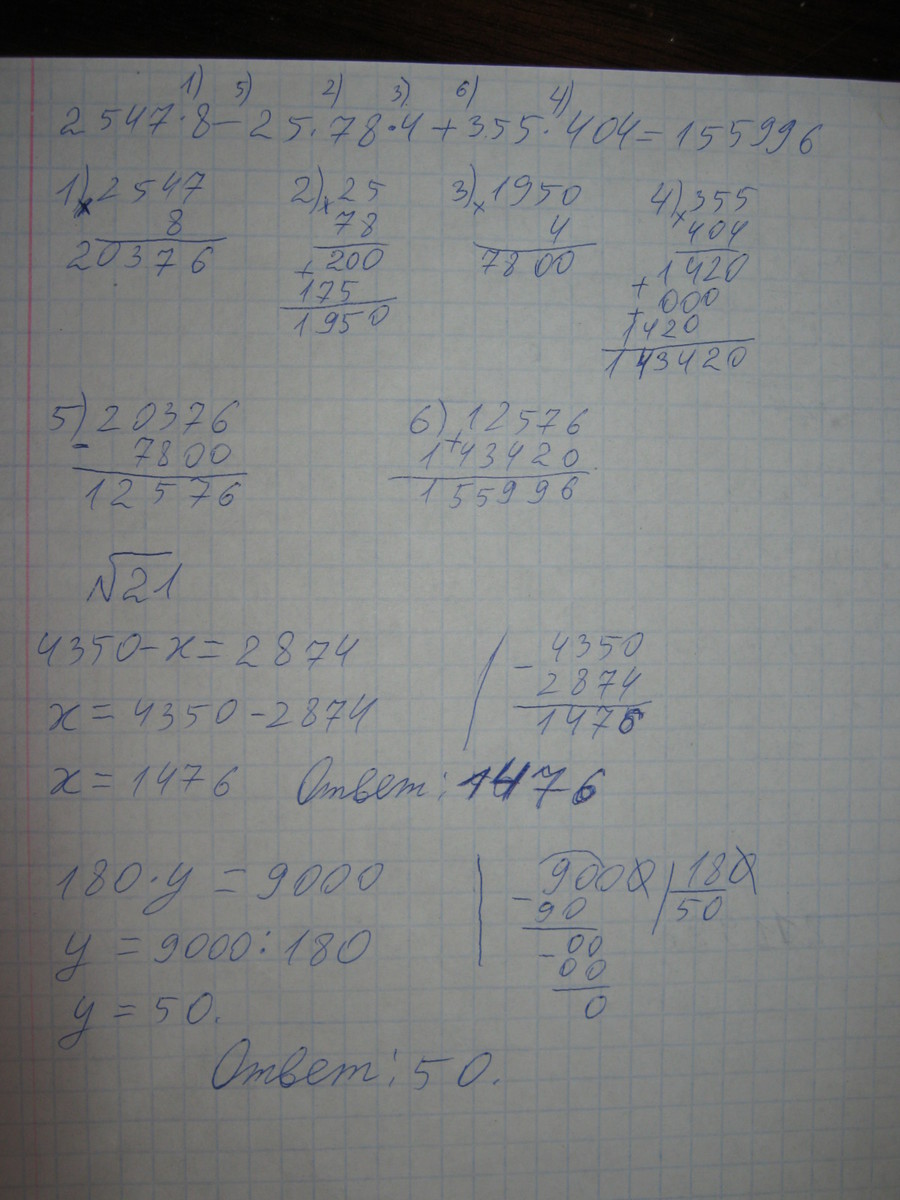 1) 5) 2) 3) 6) 4)
2547·8-25·78·4+355·404=155996
1) 2547 2) 25 3) 1950 4) 355
× 8 × 78 × 4 × 404
20376 + 200 7800 + 1420
175 + 000
1950 1420
143420
5) 20376 6) 12576
- 7800 + 143420
12576 155996
√21
4350-x=2874 - 4350
x=4350-2874 2874
x=1476 1476
Ответ: 1476
180·y=9000 - 9000 | 180
y=9000:180 90 50
y=50. - 00
00
0
Ответ: 50.